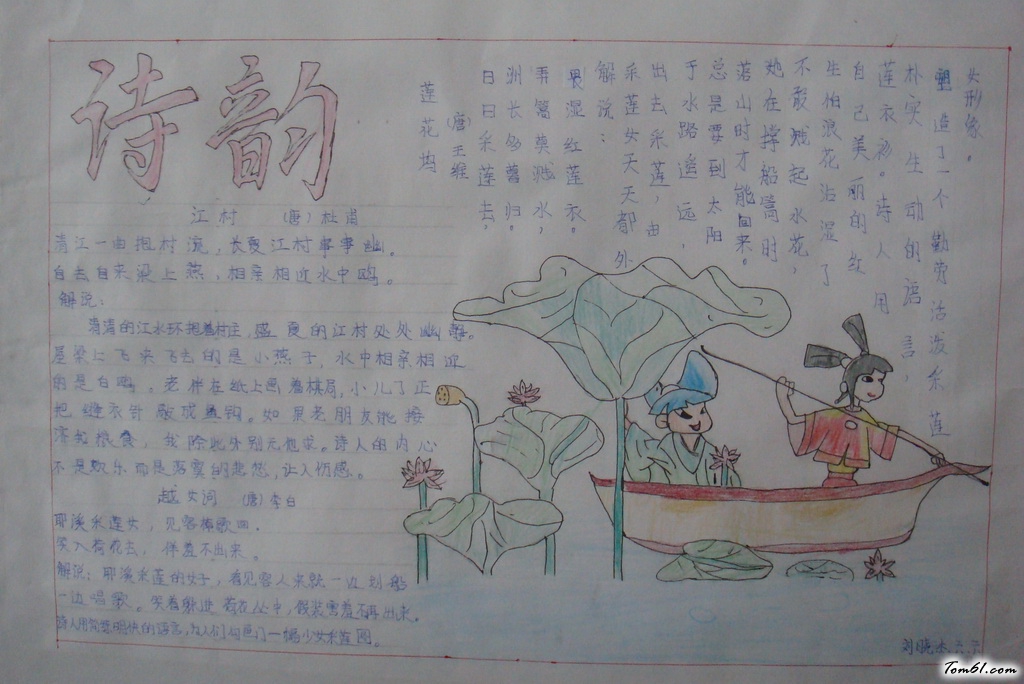 诗韵
江村 (唐)杜甫
清江一曲抱村流，长夏江村事事幽。
自去自来梁上燕，相亲相近水中鸥。
解说：
清清的江水环抱着村庄，盛夏的江村处处幽静。
屋梁上飞来飞去的是小燕子，水中相亲相近
的是白鸥。老伴在纸上画着棋局，小儿子正
把缝衣针敲成鱼钩。如果老朋友能接
济些粮食，我除此外别无他求。诗人的内心
不是欢乐而是落寞的悲愁，让人伤感。
越女词 (唐)李白
耶溪采莲女，见客棹歌回。
笑入荷花去，佯羞不出来。
解说：耶溪采莲的女子，看见客人来就一边划船
一边唱歌。笑着躲进荷花丛中，假装害羞不再出来。
诗人用简练明快的语言，为人们勾画了一幅少女采莲图。
莲花坞
(唐)王维
日日采莲去，
洲长多暮归。
弄篙莫溅水，
畏湿红莲衣。
解说：
采莲女天天都外
出去采莲，由
于水路遥远，
总是要到太阳
落山时才能回来。
她在撑船篙时
不敢溅起水花，
生怕浪花沾湿了
自己美丽的红
莲衣衫。诗人用
朴实生动的语言，
塑造了一个勤劳活泼采莲
女形象。
刘晓杰 六.六
Tom61.com